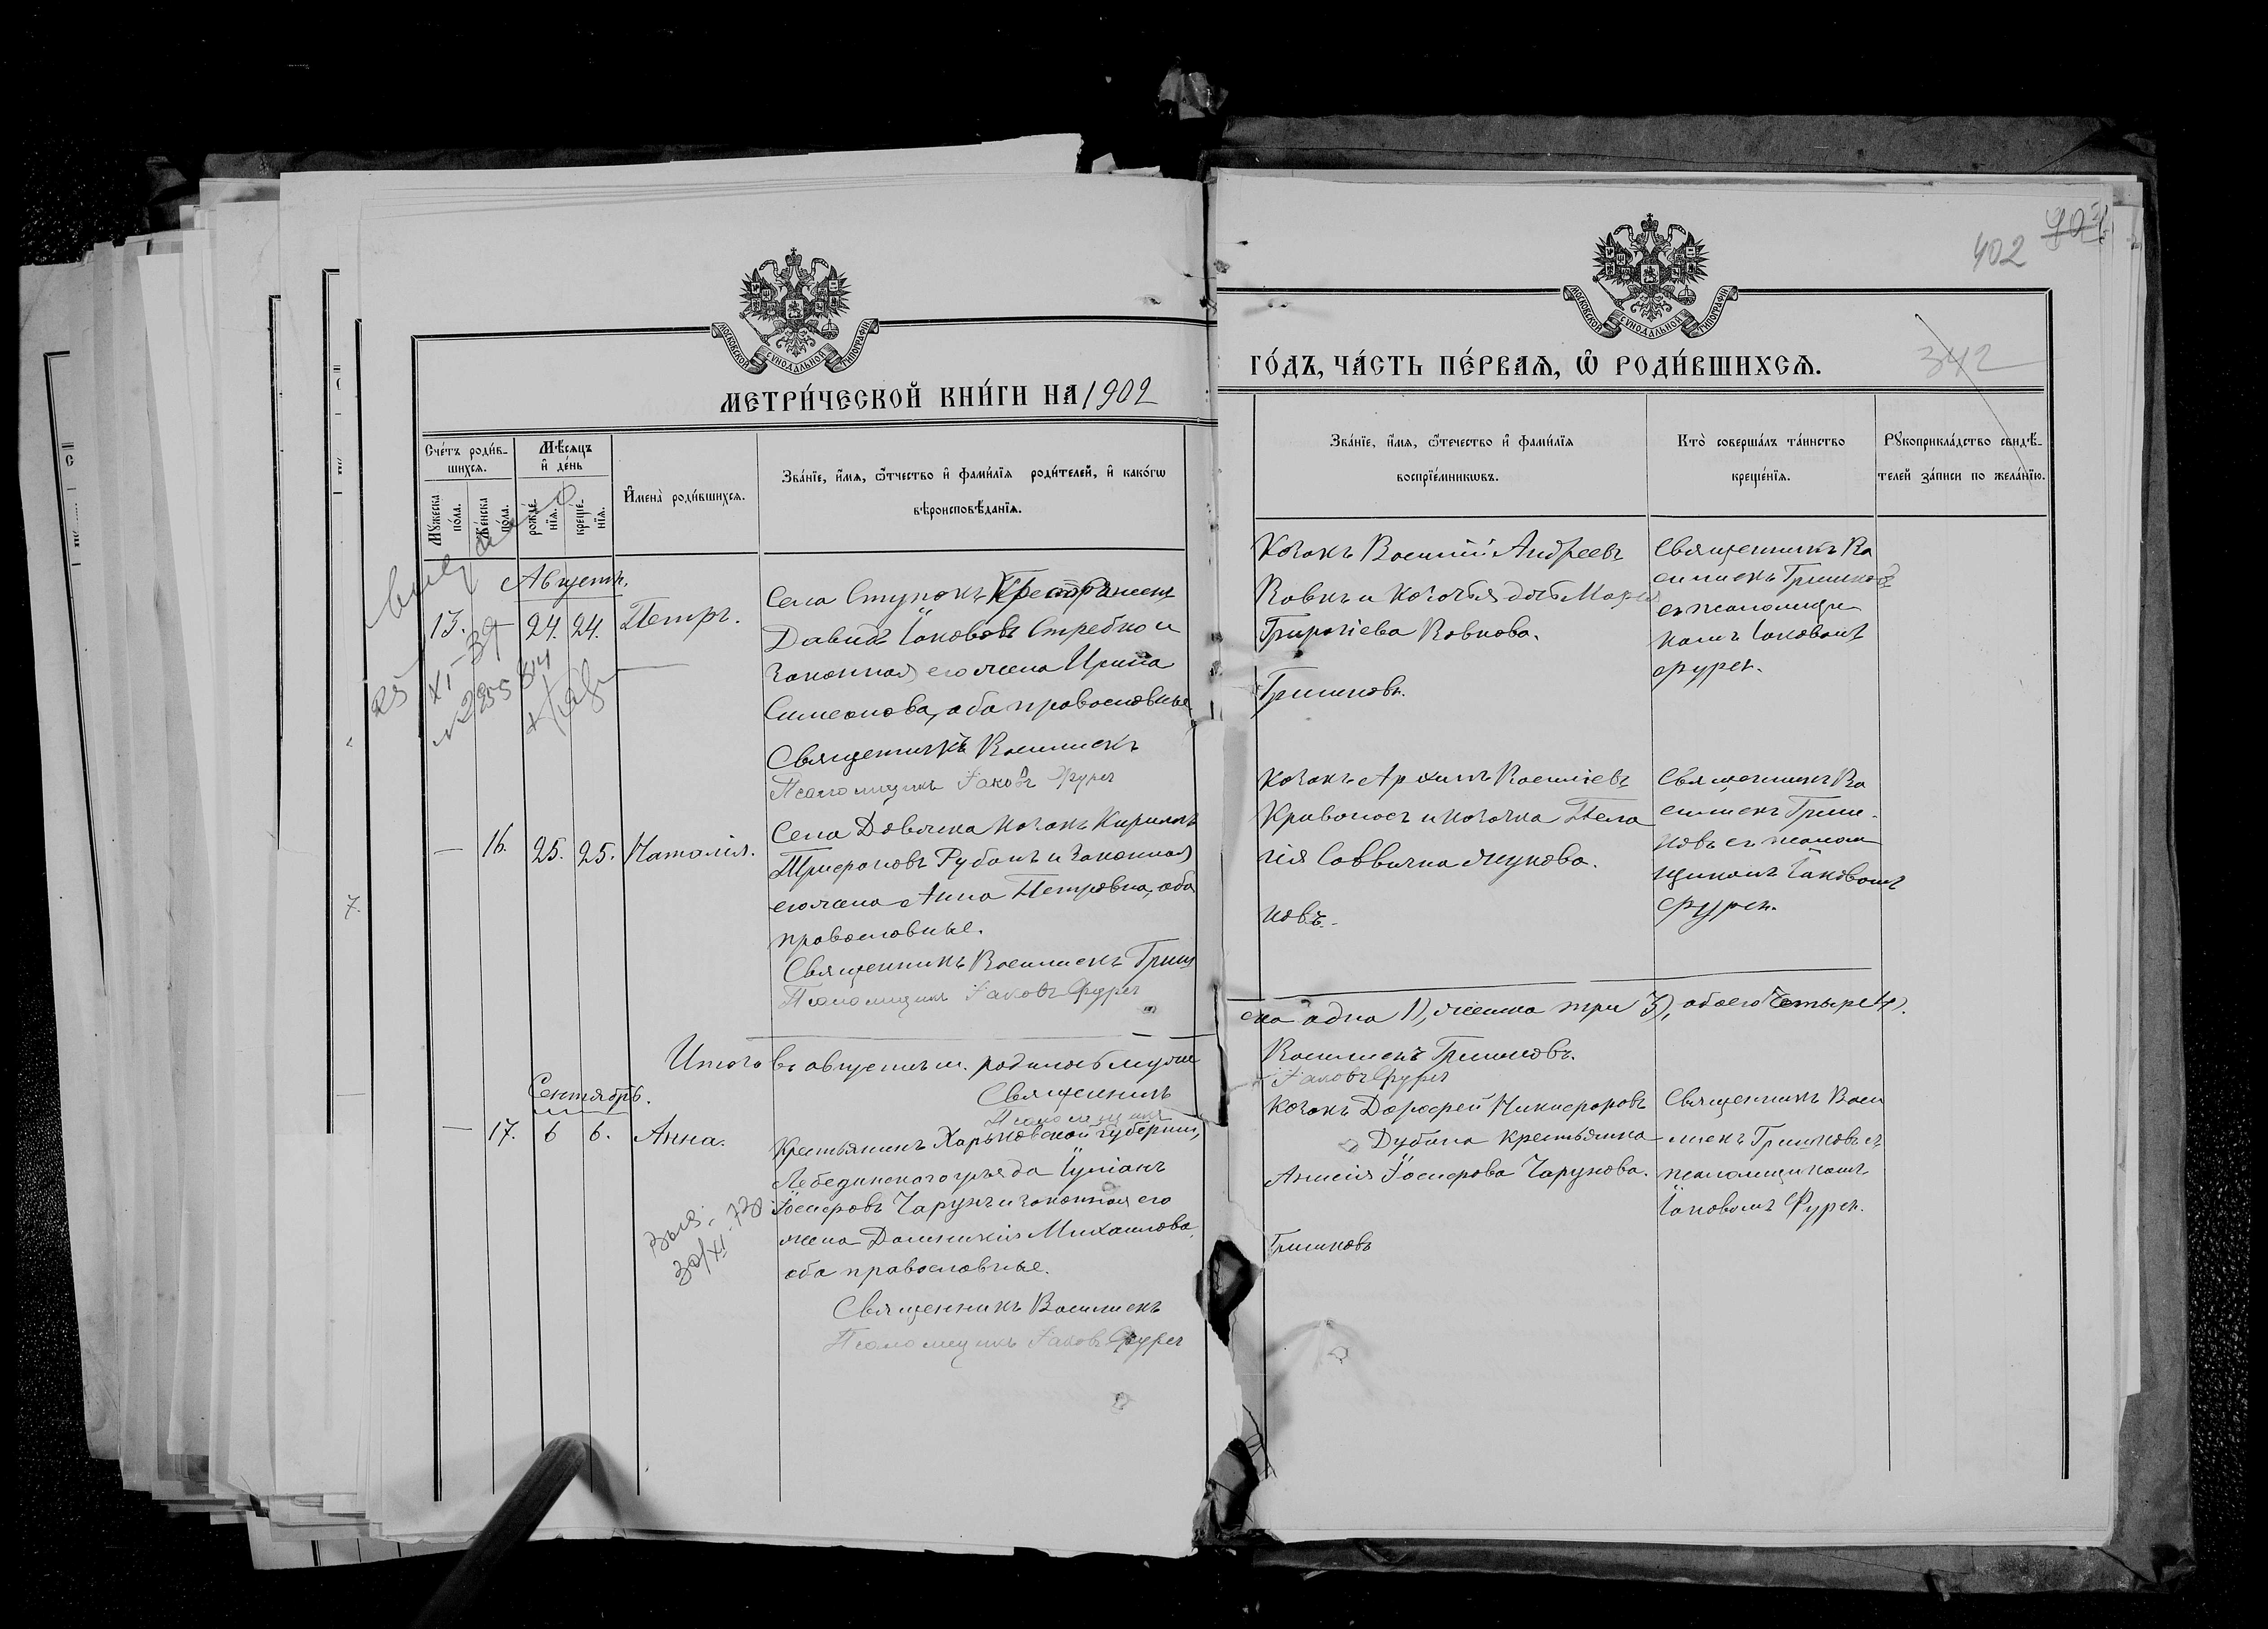 МОСКОВСКОЙ СѴНОДАЛЬНОЙ ТИПОГРАФІИ
МЕТРИ́ЧЕСКОЙ КНИ́ГИ НА 1902
Сче́тъ роди́в-
шихсѧ.
Мѣ́сѧцъ
и҆ де́нь
Мꙋ́жеска
по́ла.
Же́нска
по́ла.
рожде́-
нїѧ.
креще́-
нїѧ.
И҆мена̀ роди́вшихсѧ.
Зва́нїе, и҆́мѧ, ѻ҆́тчество и҆ фами́лїѧ роди́телей, и҆ како́гѡ
вѣроисповѣ́данїѧ.
Августъ.
13. 24. 24. Петръ.
Села Ступокъ Крестьянинъ
Давидъ Іаковъ Стребко и
законная его жена Ирина
Симеонова, оба православные
Священникъ Василискъ
Псаломщикъ Іаковъ Фурсъ
25
XI-39
— 16. 25. 25. Наталія.
Села Довжика козакъ Кириллъ
Трифоновъ Рубанъ и законная
его жена Анна Петровна, оба
православные.
Священникъ Василискъ Гриш
Псаломщикъ Іаковъ Фурсъ
Итого въ августѣ м. родилось муже
Священникъ
Псаломщикъ
Сентябрь.
— 17. 6 6. Анна.
Крестьянинъ Харьковской губерніи,
Лебединскаго уѣзда Іуліанъ
Іосифовъ Чарунъ и законная его
жена Домникія Михаилова,
оба православные.
Священникъ Василискъ
Псаломщикъ Іаковъ Фурсъ
30/XI
7.
402
342
МОСКОВСКОЙ СѴНОДАЛЬНОЙ ТИПОГРАФІИ
ГО́ДЪ, ЧА́СТЬ ПЕ́РВАѦ, Ѽ РОДИ́ВШИХСѦ.
Зва́нїе, и҆́мѧ, ѻ҆́течество и҆ фами́лїѧ
воспрїе́мникѡвъ.
Кто̀ соверша́лъ та́инство
креще́нїѧ.
Рꙋкоприкла́дство свидѣ́-
телей за́писи по жела́нїю.
Козакъ Василій Андреевъ
Вовкъ и козачья дочь Марія
Григоріева Вовкова.
Гришковъ.
Священникъ Ва
силискъ Гришковъ
съ псаломщи
комъ Іаковомъ
Фурсъ.
Козакъ Архипъ Василіевъ
Кривоносъ и козачка Пела
гія Саввична Жукова.
ковъ.
Священникъ Ва
силискъ Гриш-
ковъ съ псалом
щикомъ Іаковомъ
Фурсъ.
ска одна 1), женска три 3), обоего четыре 4).
Василискъ Гришковъ.
Іаковъ Фурсъ
Козакъ Дорофей Никифоровъ
Дубина крестьянка
Анисія Іосифова Чарунова.
Гришковъ
Священникъ Васи
лискъ Гришковъ съ
псаломщикомъ
Іаковомъ Фурсъ.